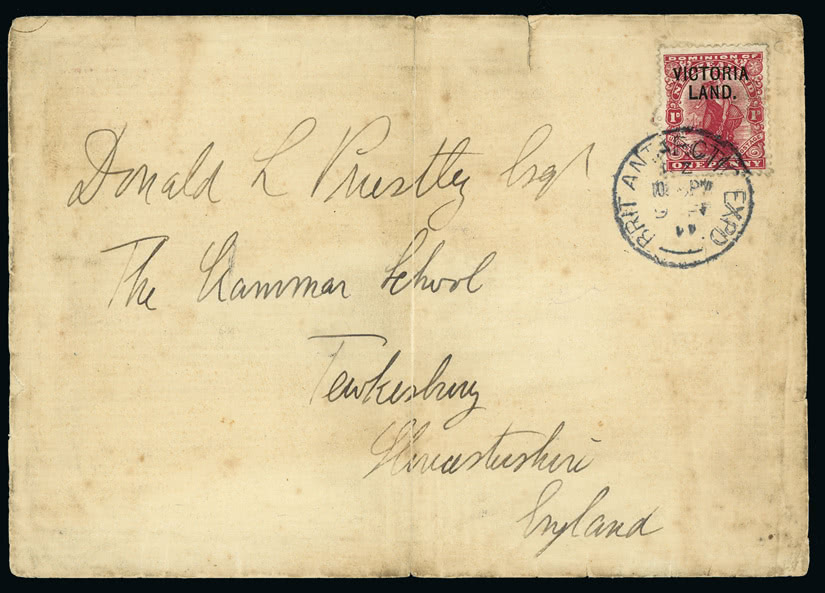 DOMINION OF
VICTORIA
LAND.
1D
ONE PENNY
BRIT ANTARCTIC EXPD
Donald L Priestley Esqr
The Grammar School
Tewkesbury
Gloucestershire
England